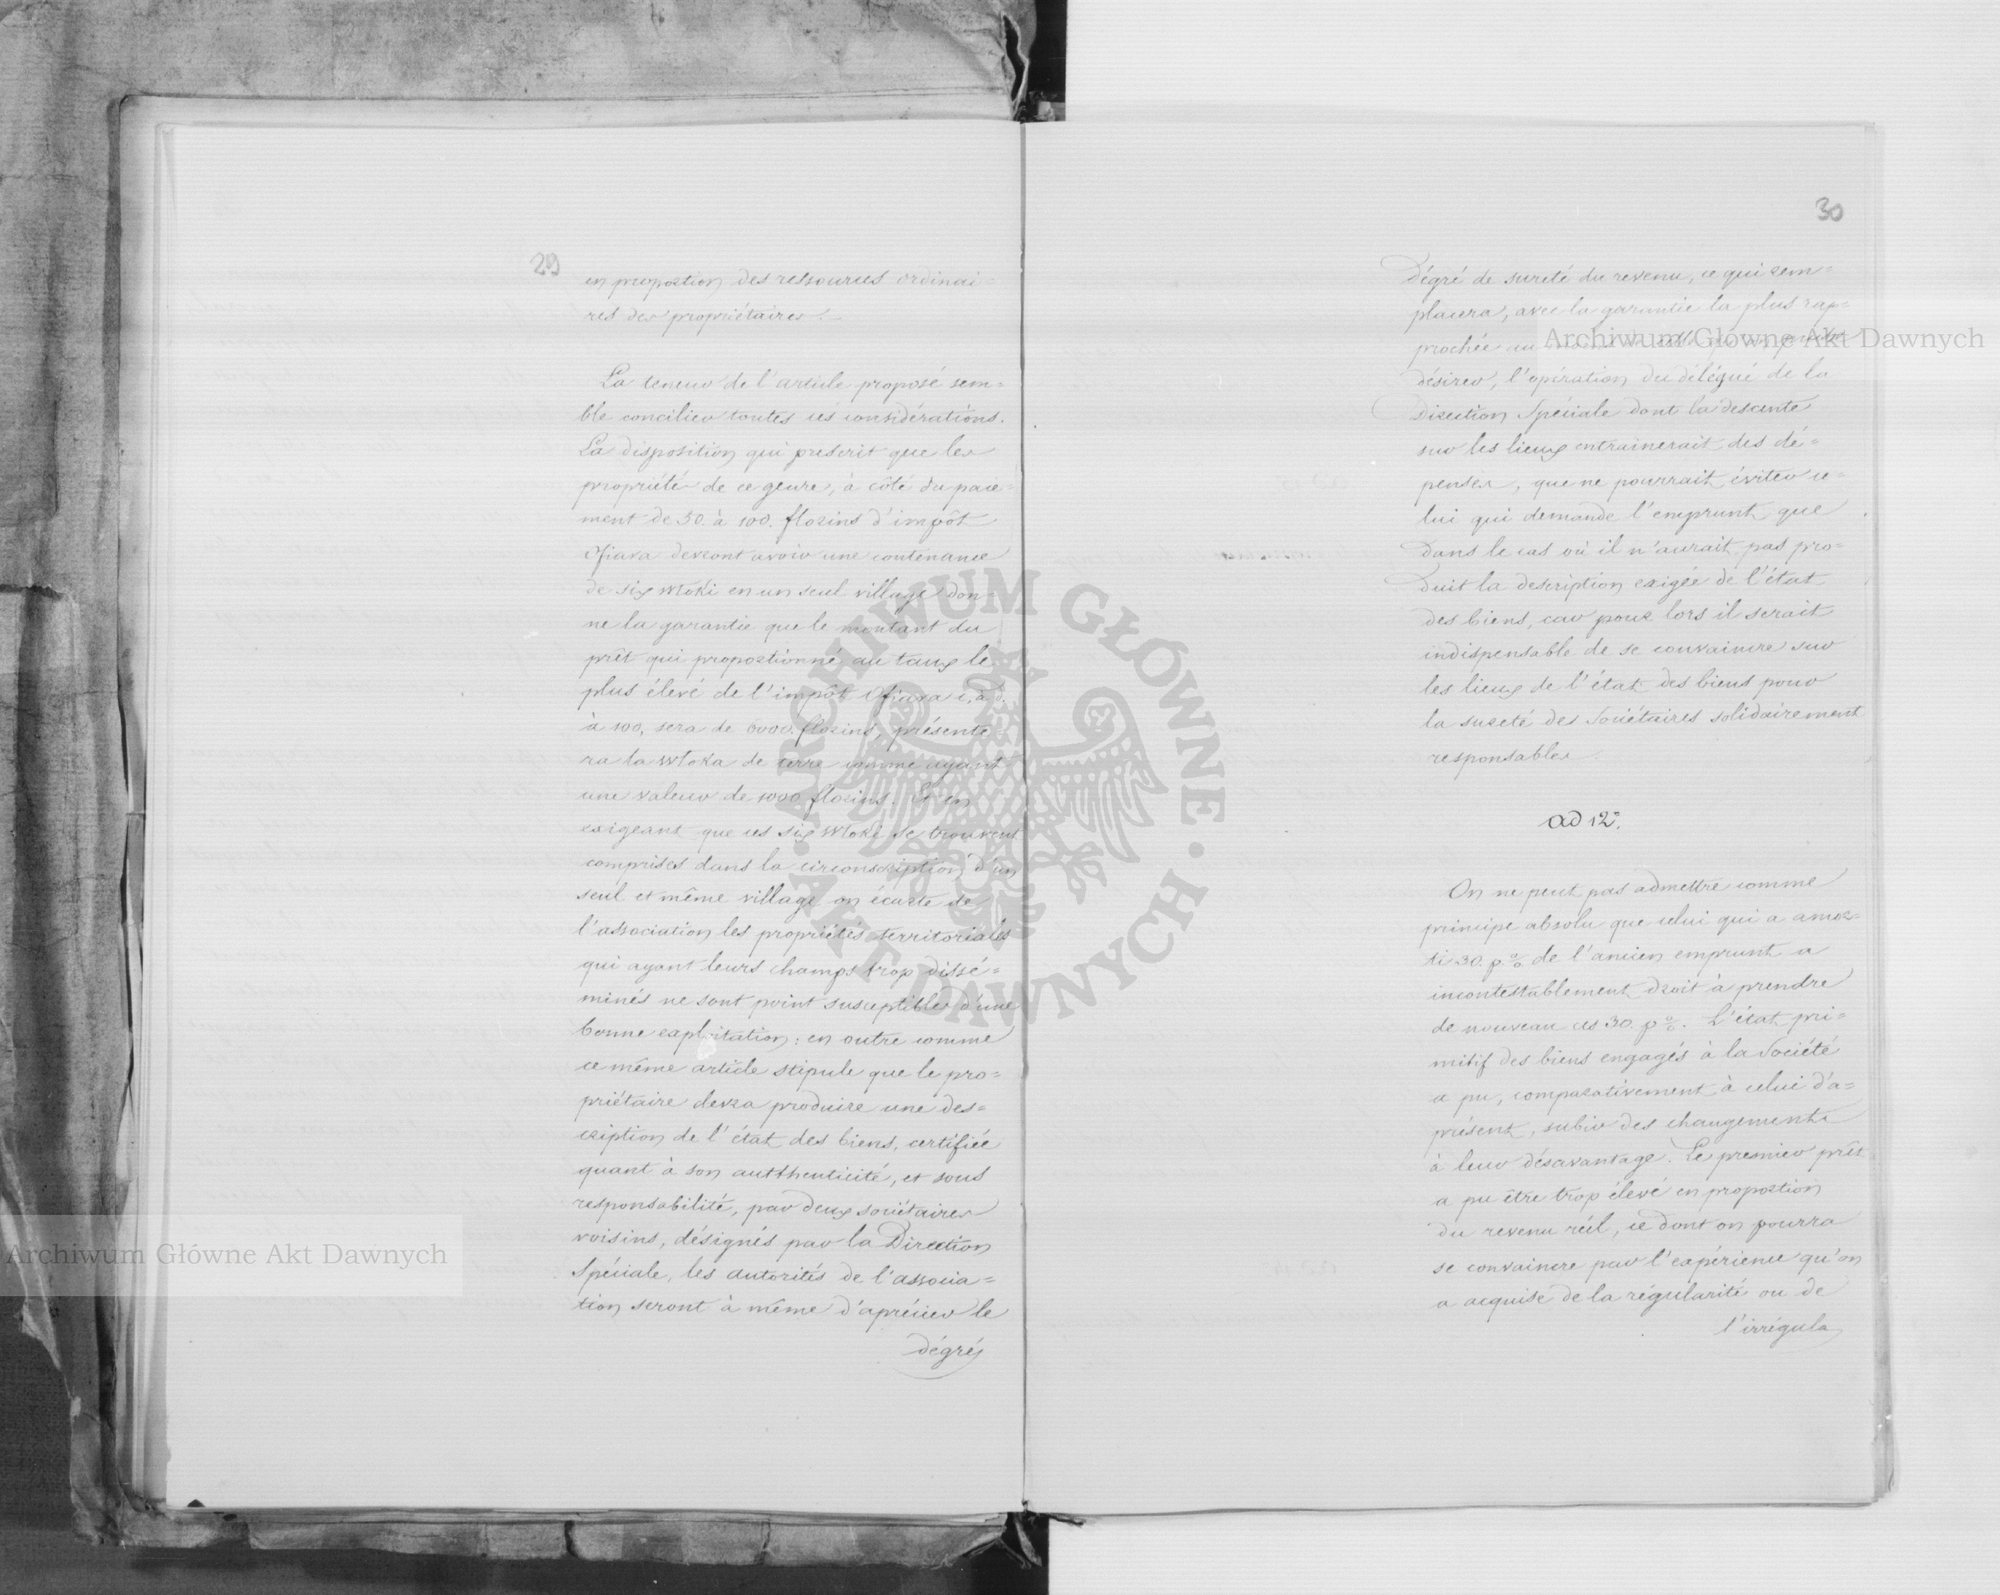 29
en proportion des ressources ordinai=
res des propriétaires.
La teneur de l'article proposé sem=
ble concilier toutes ces considérations.
La disposition qui prescrit que les
propriétés de ce genre, à côté du paie=
ment de 50. à 100. florins d'impôt
Ofiara devront avoir une contenance
de six Włoki en un seul village don=
ne la garantie que le montant du
prêt qui proportionné au taux le
plus élevé de l'impôt Ofiara c. à d.
à 100, sera de 6000. florins, présente
ra la Włoka de terre comme ayant
une valeur de 1000 florins. Et en
exigeant que ces six Włoki se trouvent
comprises dans la circonscription d'un
seul et même village on écarte de
l'association les propriétés territoriales
qui ayant leurs champs trop dissé=
minés ne sont point susceptibles d'une
bonne exploitation: en outre comme
ce même article stipule que le pro=
priétaire devra produire une des=
cription de l'état des biens, certifiée
quant à sonautthenticité, et sous
responsabilité, par deux sociétaires
voisins, désignés par la Direction
Spéciale, les autorités de l'associa=
tion seront à même d'aprécier le
dégré
30
dégré de sureté du revenu, ce qui rem=
placera, avec la garantie la plus rap=
prochée au
désirer, l'opération du délégué de la
Direction Spéciale dont la descente
sur les lieux entrainerait des dé=
penses, que ne pourrait éviter ce=
lui qui demande l'emprunt que
dans le cas où il n'aurait pas pro=
duit la description exigée de l'état
des biens, car pour lors il serait
indispensable de se convaincre sur
les lieux de l'état des biens pour
la sureté des Sociétaires solidairement
responsables.
ad 12°.
On ne peut pas admettre comme
principe absolu que celui qui a amor=
ti 30. p % de l'ancien emprunt a
incontestablement droit à prendre
de nouveau ces 30. p %. L'état pri=
mitif des biens engagés à la Société
a pu, comparativement à celui d'a=
présent, subir des changements
à leur désavantage. Le premier prêt
a pu être trop élevé en proportion
du revenu réel, ce dont on pourra
se convaincre par l'expérience qu'on
a acquise de la régularité ou de
l'irrégula
Archiwum Główne Akt Dawnych
Archiwum Główne Akt Dawnych
ARCHIWUM GŁÓWNE AKT DAWNYCH